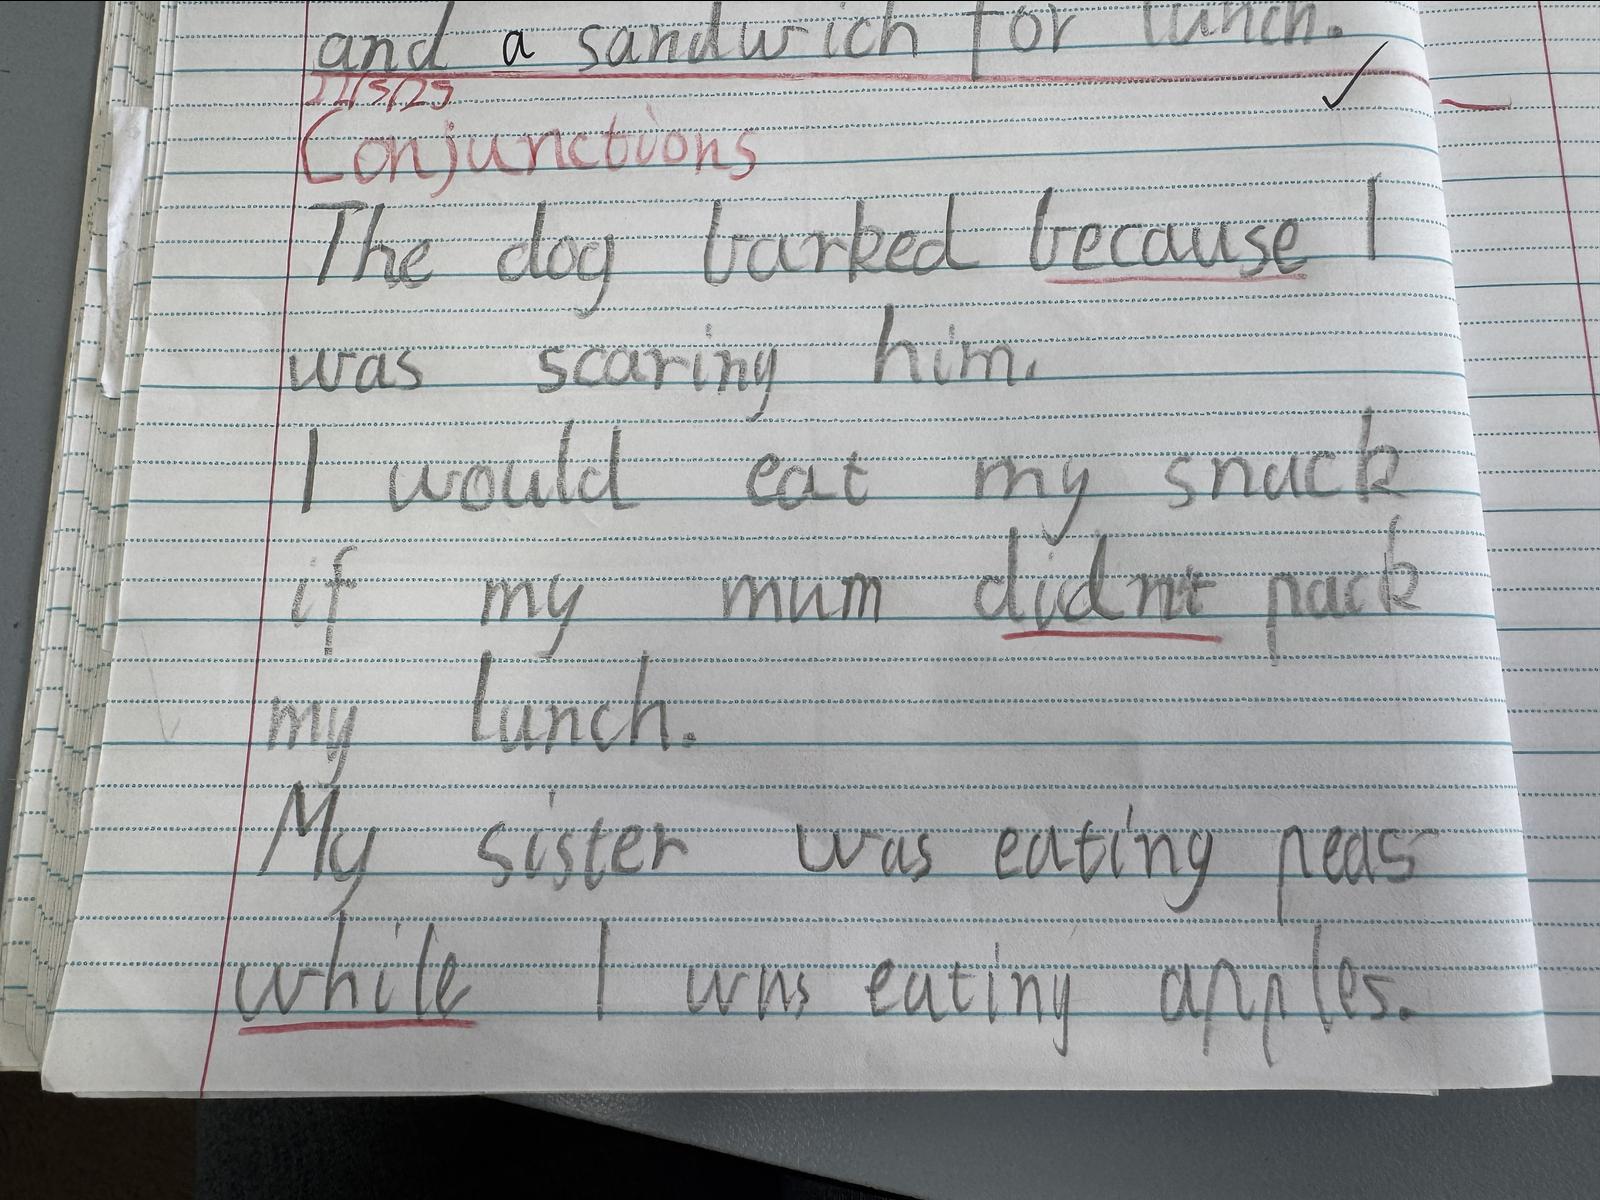 and a sandwich for lunch.
22/5/25
Conjunctions
The dog barked because I
was scaring him.
I would eat my snack
if my mum didnt pack
my lunch.
My sister was eating peas
while I was eating apples.